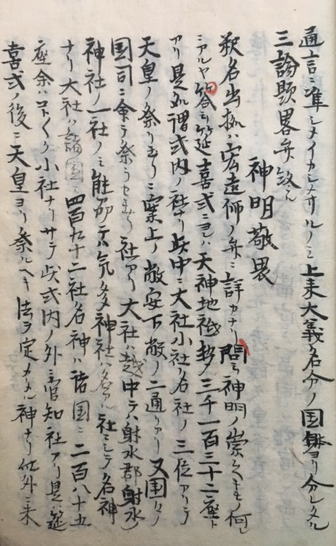 通言ニ準シメイカレサルノミ上来大義名分ノ国体ヨリ分レタル
三論題畧弁致ス
神明敬畏
釈名出拠ハ宏遠師ノ弁ニ詳カナリ問ニ神明ノ崇ヘキモノ何レ
ニアルヤ答ニ延喜式ニヨレハ天神地祇都テ三千一百三十二座ト
アリ是所謂式内ノ社ナリ此中ニ大社小社名社ノ三位アリテ
天皇ノ祭リ玉フニ案上ノ敝安下敝ノ二通ハアリ又国々ノ
国司ニ命テ祭ラセ玉フ社アリ大社ハ越中テハ射水郡射水
神社一社ノミ能州テハ気多神社ハ名名社ニシテ名神
ナリ大社ハ諸国ニ四百九十二社名神ハ諸国ニ二百八十五
座余ハコト〳〵ク小社ナリサテ此式内ノ外ニ官知社アリ是ハ延
喜式ノ後ニ天皇ヨリ祭ルヘキ法ヲ定メタル神ナリ此外ニ未